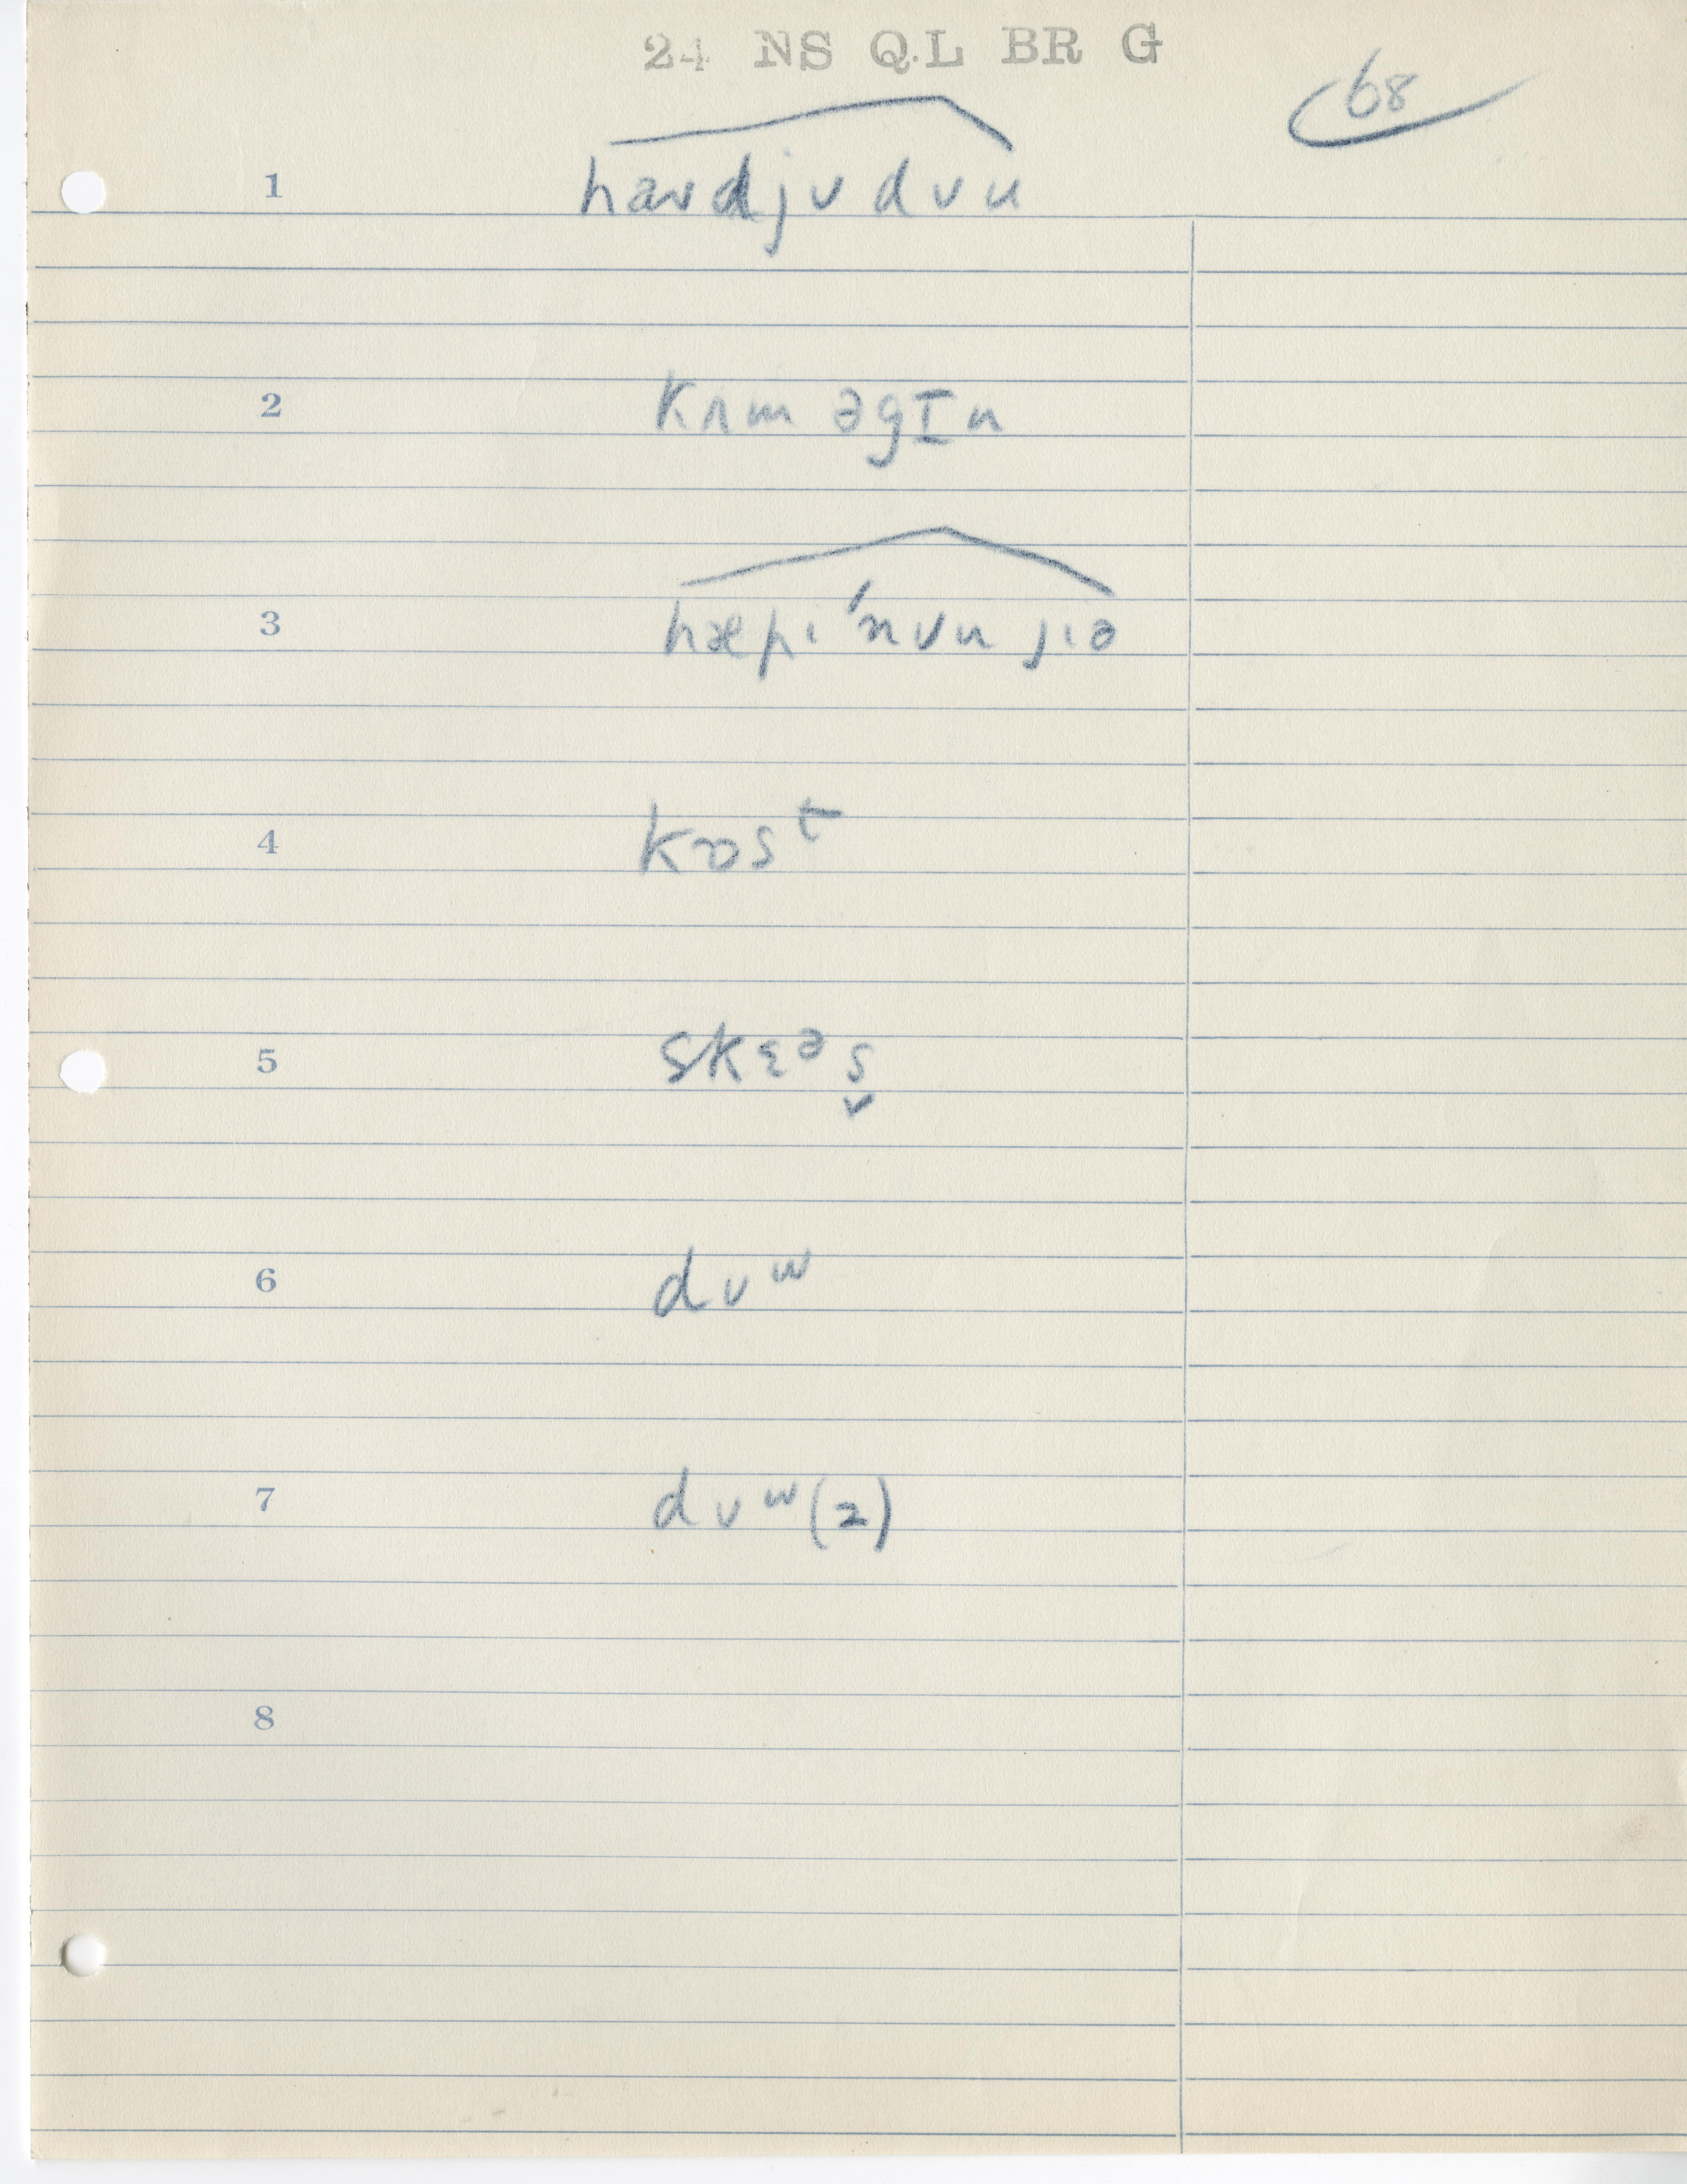 24 NS Q.L BR G
68
1 haʊdjʊdʊu
2 kʌm əgɪn
3 hæpɩ ˈnʊu jɩə
4 kɒsᵗ
5 skɛᵊs̬
6 dʊʷ
7 dʊʷ(z)
8